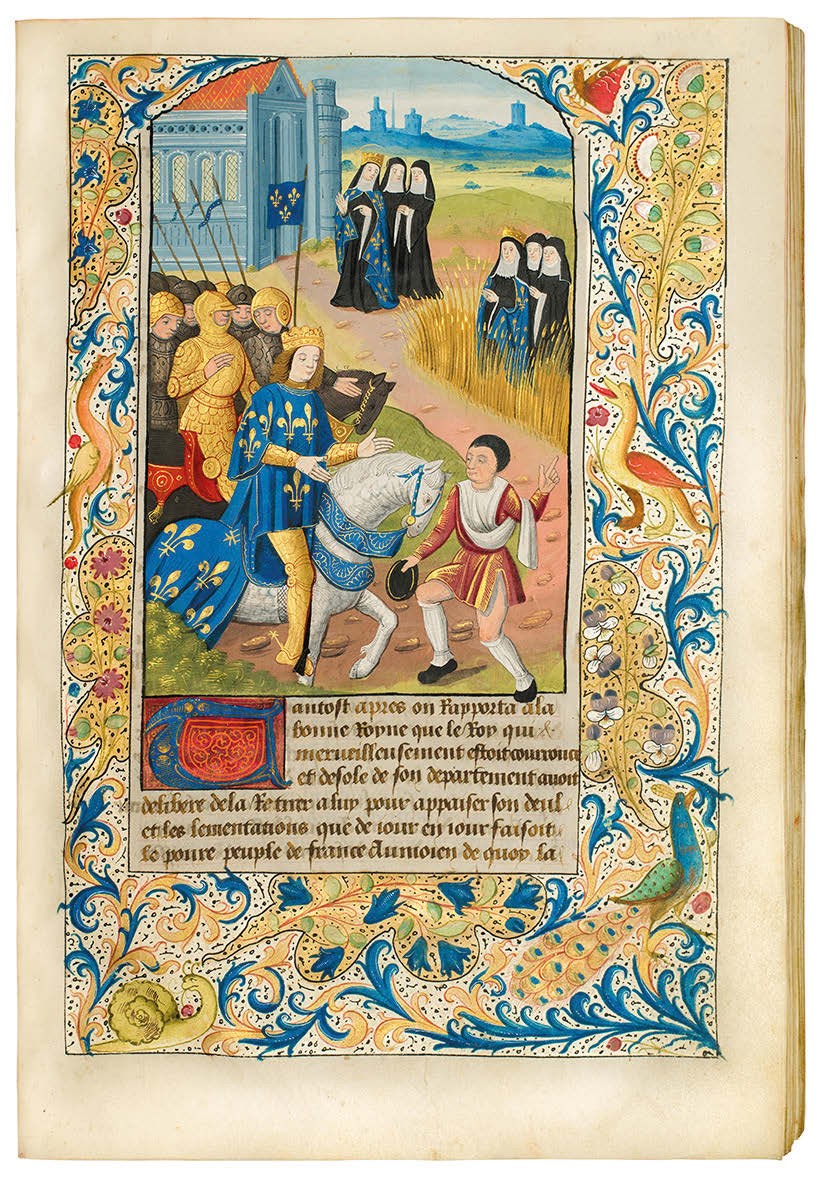 Tantost apres on Rapporta a la
bonne Royne que le Roy qui
merueilleusement estoit courrouce
et desole de son departement auoit
delibere de la Retirer a luy pour appaiser son deul
et les lementations que de iour en iour faisoit
le poure peuple de france Au moien de quoy la